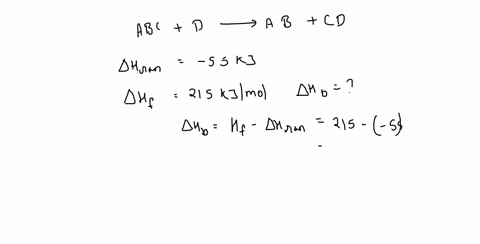 ABC + D ⟶ A B + CD
ΔHrxn = -55 KJ
ΔHf = 215 KJ/mol ΔHb = ?
ΔHb = Hf - ΔHrxn = 215 - (-55
=